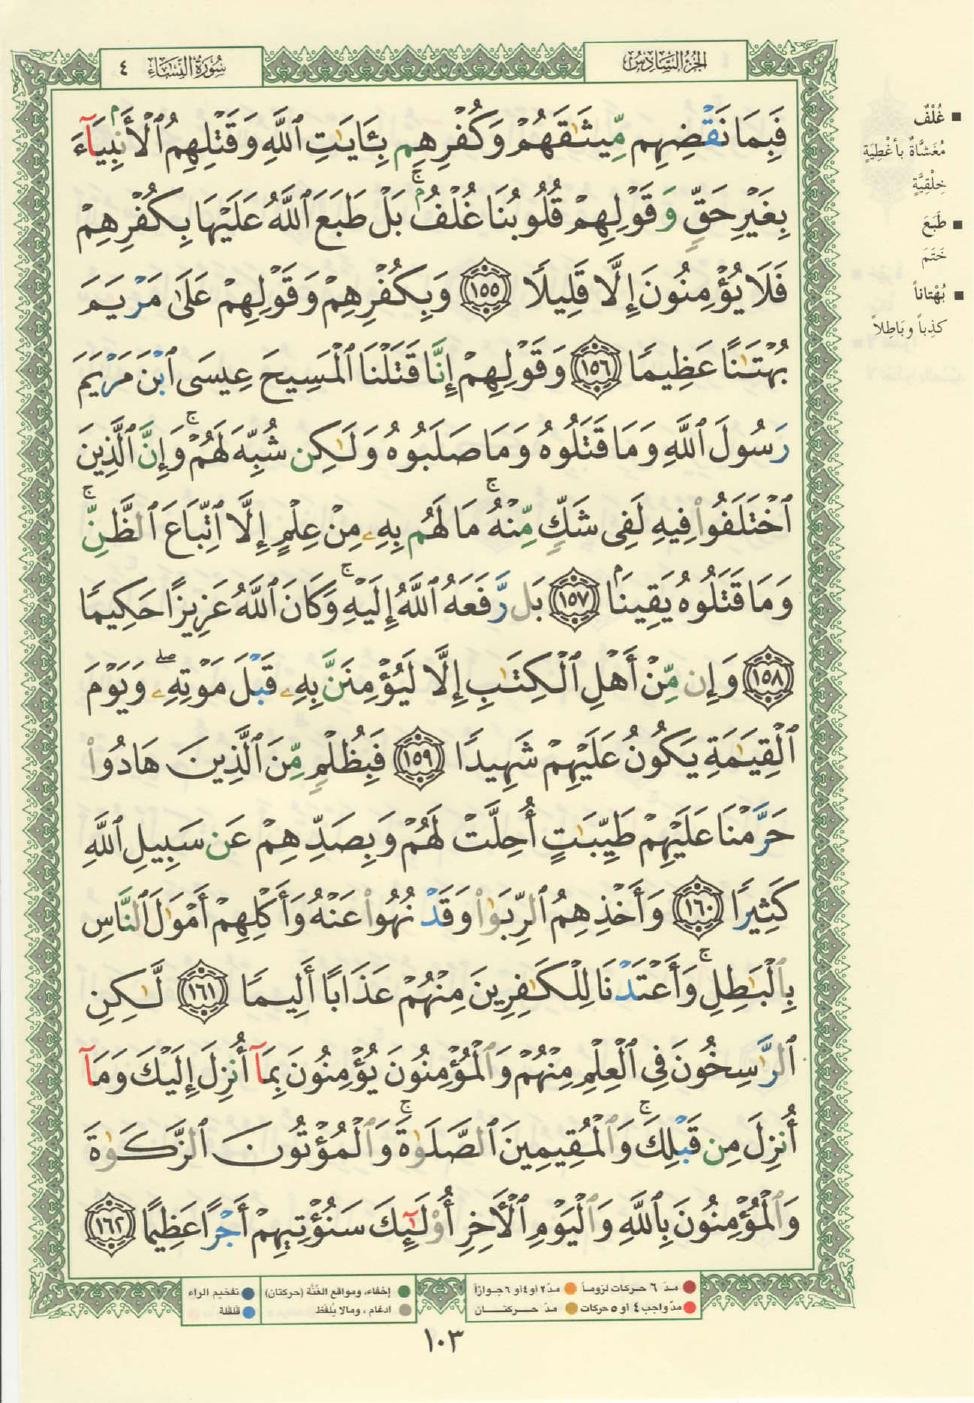 الجزء السادس
سورة النساء ٤
فَبِمَا نَقْضِهِم مِّيثَٰقَهُمْ وَكُفْرِهِم بِـَٔايَٰتِ ٱللَّهِ وَقَتْلِهِمُ ٱلْأَنۢبِيَآءَ
بِغَيْرِ حَقٍّ وَقَوْلِهِمْ قُلُوبُنَا غُلْفُۢ ۚ بَلْ طَبَعَ ٱللَّهُ عَلَيْهَا بِكُفْرِهِمْ
فَلَا يُؤْمِنُونَ إِلَّا قَلِيلًا ١٥٥ وَبِكُفْرِهِمْ وَقَوْلِهِمْ عَلَىٰ مَرْيَمَ
بُهْتَٰنًا عَظِيمًا ١٥٦ وَقَوْلِهِمْ إِنَّا قَتَلْنَا ٱلْمَسِيحَ عِيسَى ٱبْنَ مَرْيَمَ
رَسُولَ ٱللَّهِ وَمَا قَتَلُوهُ وَمَا صَلَبُوهُ وَلَٰكِن شُبِّهَ لَهُمْ ۚ وَإِنَّ ٱلَّذِينَ
ٱخْتَلَفُوا۟ فِيهِ لَفِى شَكٍّ مِّنْهُ ۚ مَا لَهُم بِهِۦ مِنْ عِلْمٍ إِلَّا ٱتِّبَاعَ ٱلظَّنِّ ۚ
وَمَا قَتَلُوهُ يَقِينًۢا ١٥٧ بَل رَّفَعَهُ ٱللَّهُ إِلَيْهِ ۚ وَكَانَ ٱللَّهُ عَزِيزًا حَكِيمًا
١٥٨ وَإِن مِّنْ أَهْلِ ٱلْكِتَٰبِ إِلَّا لَيُؤْمِنَنَّ بِهِۦ قَبْلَ مَوْتِهِۦ ۖ وَيَوْمَ
ٱلْقِيَٰمَةِ يَكُونُ عَلَيْهِمْ شَهِيدًا ١٥٩ فَبِظُلْمٍ مِّنَ ٱلَّذِينَ هَادُوا۟
حَرَّمْنَا عَلَيْهِمْ طَيِّبَٰتٍ أُحِلَّتْ لَهُمْ وَبِصَدِّهِمْ عَن سَبِيلِ ٱللَّهِ
كَثِيرًا ١٦٠ وَأَخْذِهِمُ ٱلرِّبَوٰا۟ وَقَدْ نُهُوا۟ عَنْهُ وَأَكْلِهِمْ أَمْوَٰلَ ٱلنَّاسِ
بِٱلْبَٰطِلِ ۚ وَأَعْتَدْنَا لِلْكَٰفِرِينَ مِنْهُمْ عَذَابًا أَلِيمًا ١٦١ لَّٰكِنِ
ٱلرَّٰسِخُونَ فِى ٱلْعِلْمِ مِنْهُمْ وَٱلْمُؤْمِنُونَ يُؤْمِنُونَ بِمَآ أُنزِلَ إِلَيْكَ وَمَآ
أُنزِلَ مِن قَبْلِكَ ۚ وَٱلْمُقِيمِينَ ٱلصَّلَوٰةَ ۚ وَٱلْمُؤْتُونَ ٱلزَّكَوٰةَ
وَٱلْمُؤْمِنُونَ بِٱللَّهِ وَٱلْيَوْمِ ٱلْأَخِرِ أُو۟لَٰٓئِكَ سَنُؤْتِيهِمْ أَجْرًا عَظِيمًا ١٦٢
■ غُلْفٌ
مُغَشَّاةٌ بأغْطِيَةٍ
خِلْقِيَّةٍ
■ طَبَعَ
خَتَمَ
■ بُهْتاناً
كَذِباً وبَاطِلاً
● مدّ ٦ حركات لزوماً ● مدّ ٢ أو ٤ أو ٦ جوازاً
● مدّ واجب ٤ أو ٥ حركات ● مدّ حركتان
● إخفاء، ومواقع الغُنَّة (حركتان) ● تفخيم الراء
● ادغام، ومالا يُلفَظ ● قلقلة
١٠٣